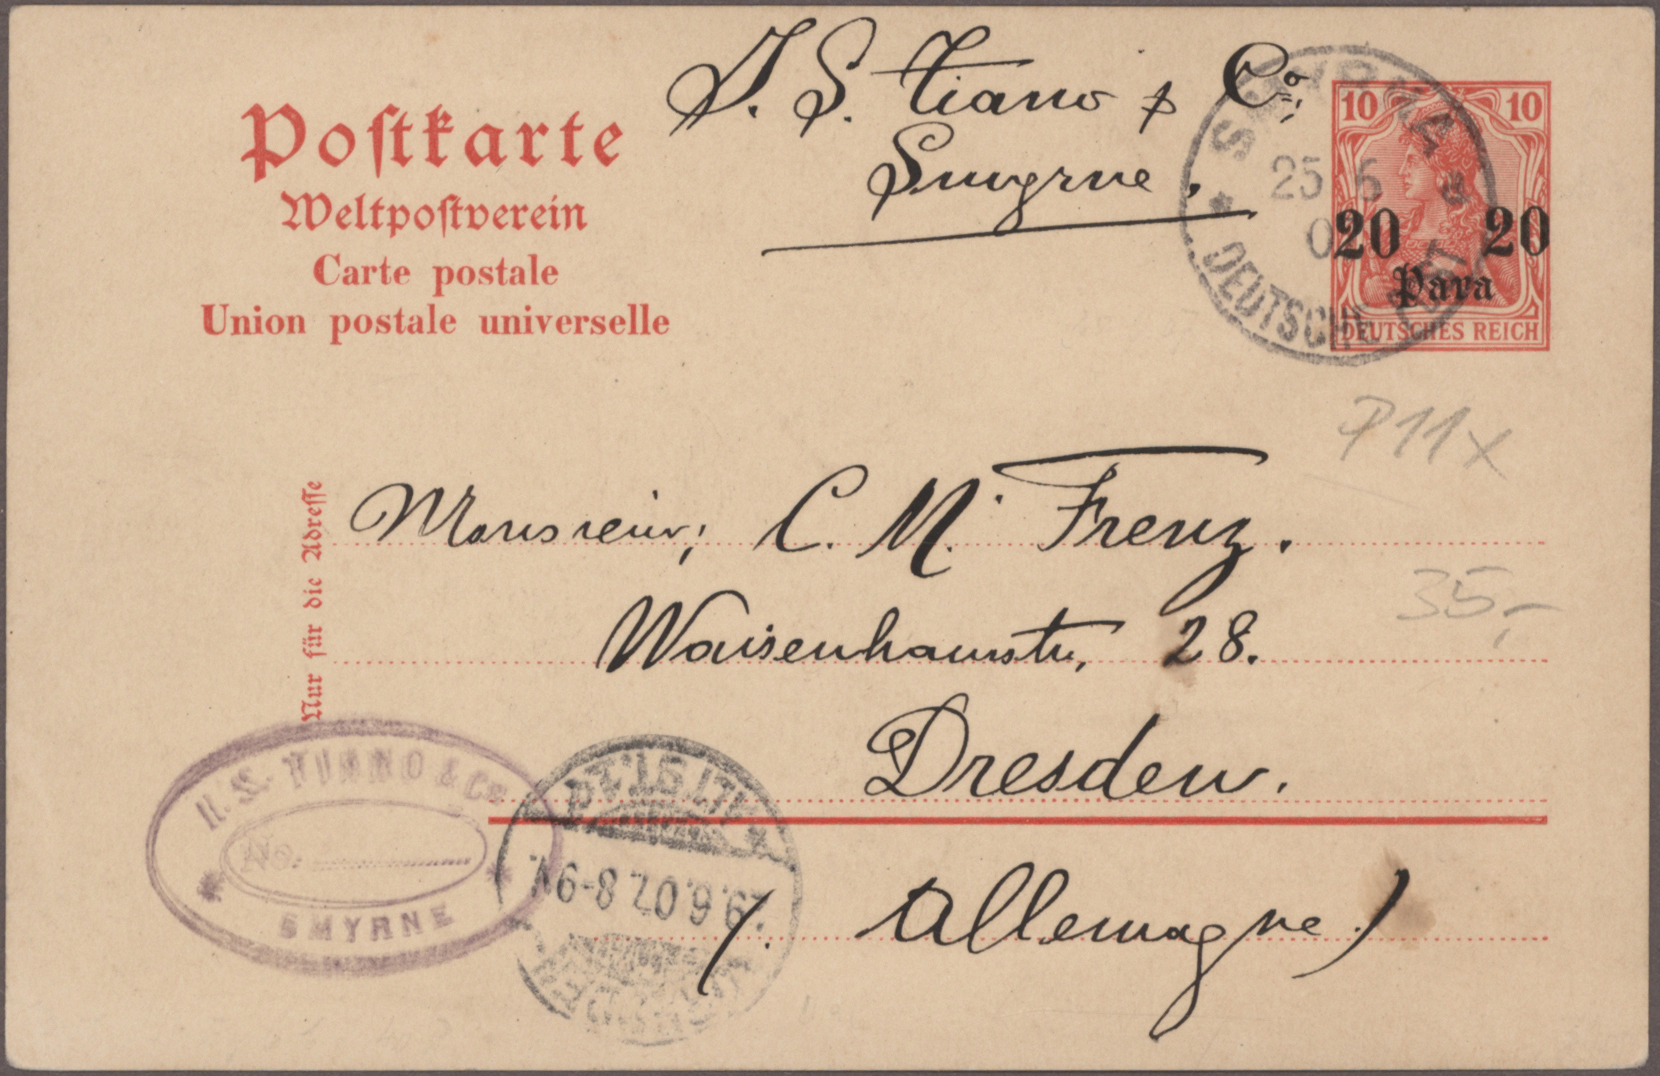 J. S. Tiano & Co.
Smyrne.
Postkarte
Weltpostverein
Carte postale
Union postale universelle
10 10
20 20
Para
DEUTSCHES REICH
SMYRNA
25 6
DEUTSCHE
P11x
Nur für die Adresse
Monsieur, C. M. Frenz.
35,-
Waisenhausstr, 28.
Dresden.
TIANO & Co
No.
SMYRNE
ALTST. 24
29.6.07. 8-9V.
DRESDEN
(Allemagne)